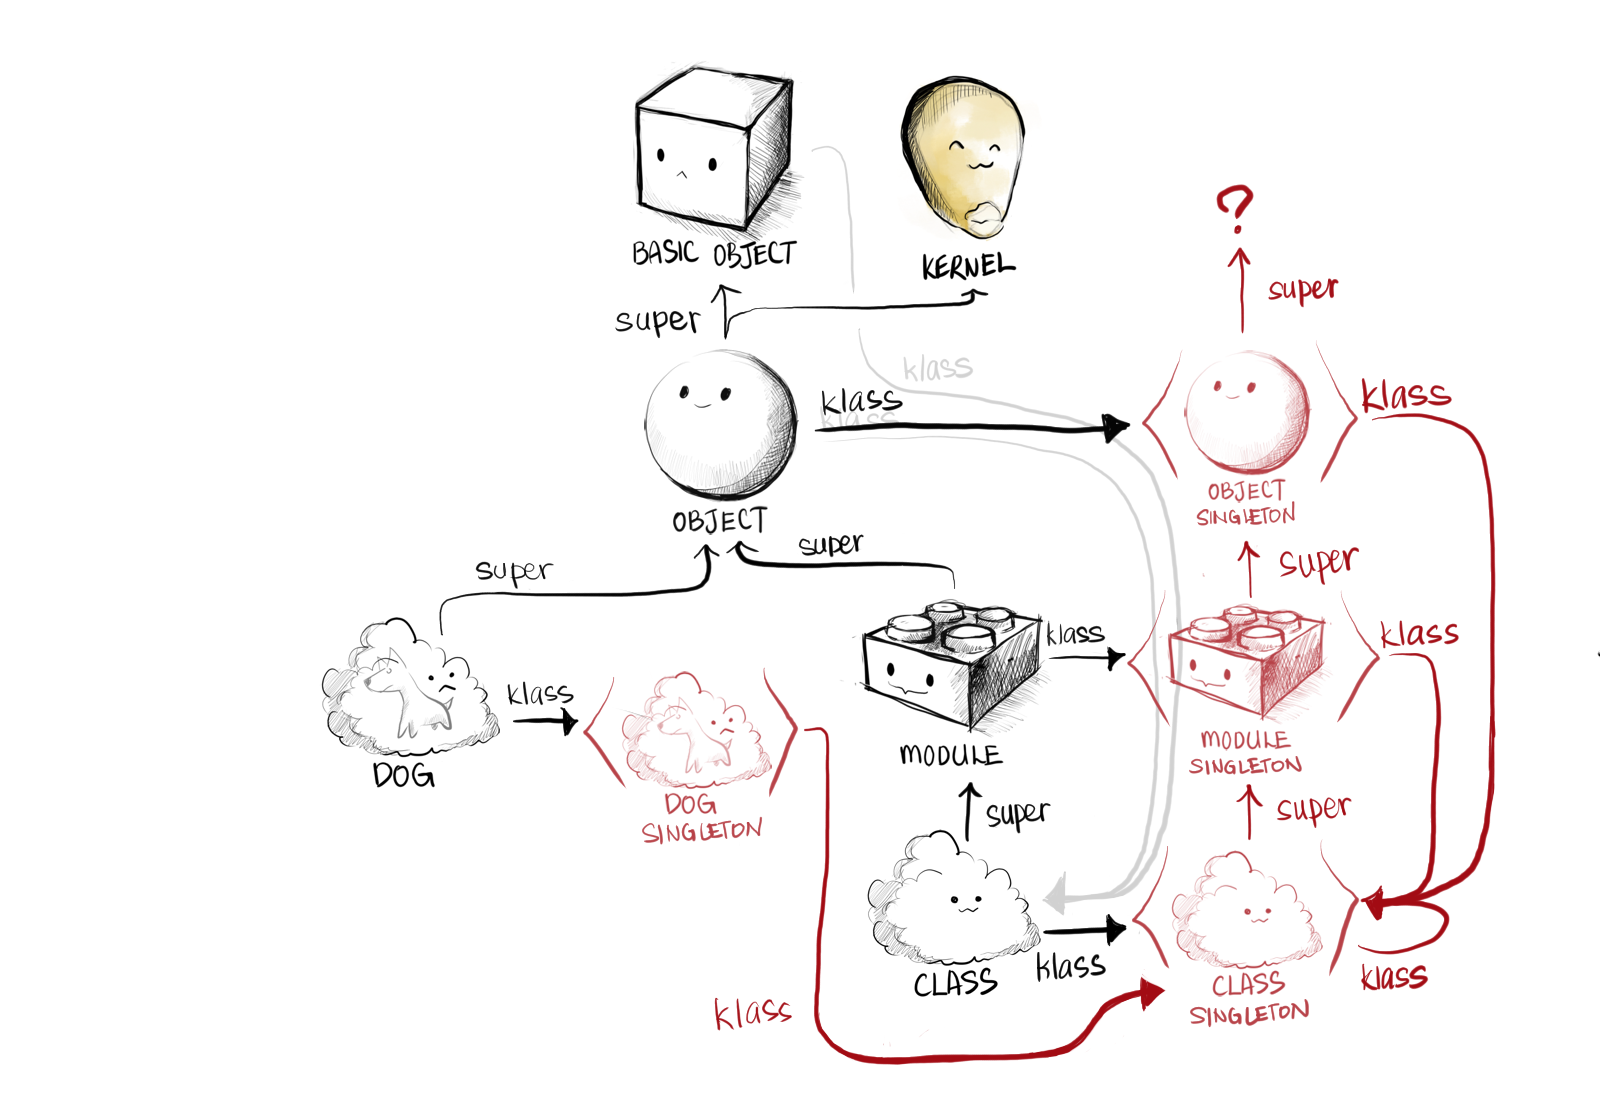 BASIC OBJECT
KERNEL
?
super
super
klass
klass
klass
klass
OBJECT
SINGLETON
OBJECT
super
super
super
klass
klass
klass
DOG
DOG
SINGLETON
MODULE
MODULE
SINGLETON
super
super
CLASS
klass
CLASS
SINGLETON
klass
klass